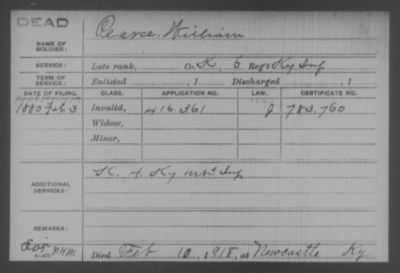 DEAD
Pearce, William
NAME OF
SOLDIER:
SERVICE: Late rank, Co. K, 6 Reg't Ky Inf
TERM OF
SERVICE: Enlisted , 1 Discharged , 1
DATE OF FILING. CLASS. APPLICATION NO. LAW. CERTIFICATE NO.
1880 Feb 3 Invalid, 416.361 G 783.760
Widow,
Minor,
ADDITIONAL
SERVICES: K. 4. Ky Mtd Inf
REMARKS:
Died Feb 10, 1918, at Newcastle Ky